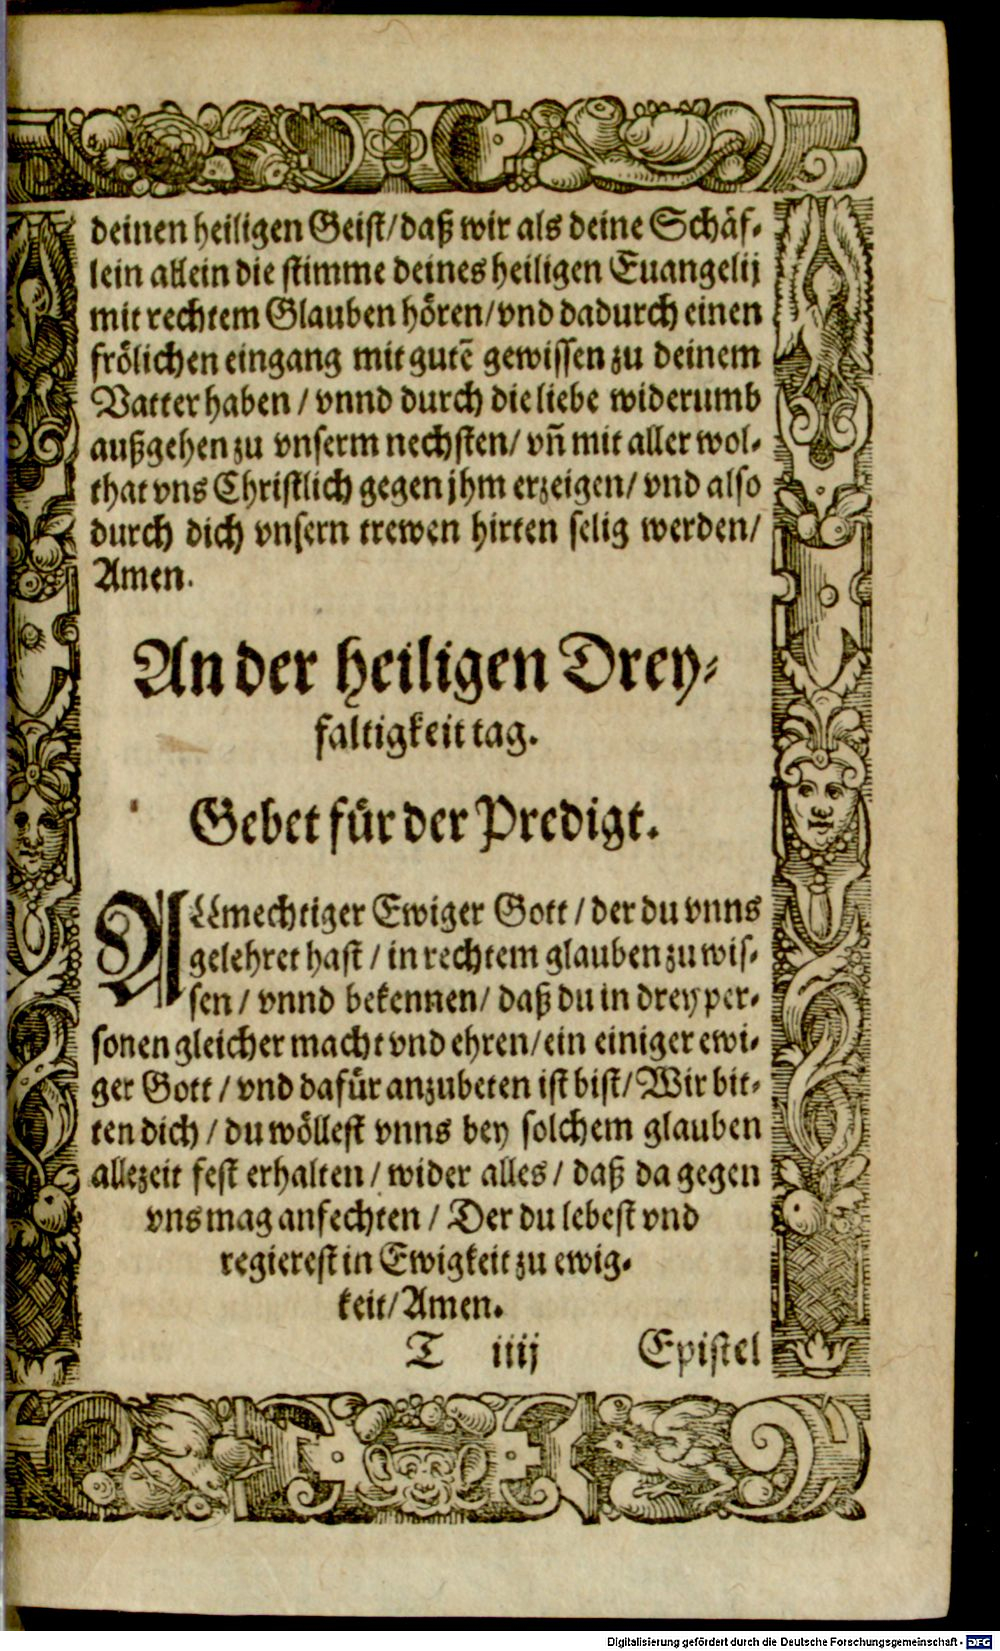 deinen heiligen Geist/daß wir als deine Schäf-
lein allein die stimme deines heiligen Euangelij
mit rechtem Glauben hören/vnd dadurch einen
frölichen eingang mit gutē gewissen zu deinem
Vatter haben / vnnd durch die liebe widerumb
außgehen zu vnserm nechsten/ vñ mit aller wol-
that vns Christlich gegen jhm erzeigen/ vnd also
durch dich vnsern trewen hirten selig werden/
Amen.
An der heiligen Drey-
faltigkeit tag.
Gebet für der Predigt.
ALLmechtiger Ewiger Gott / der du vnns
gelehret hast / in rechtem glauben zu wis-
sen / vnnd bekennen/ daß du in drey per-
sonen gleicher macht vnd ehren/ein einiger ewi-
ger Gott / vnd dafür anzubeten ist bist/ Wir bit-
ten dich / du wöllest vnns bey solchem glauben
allezeit fest erhalten / wider alles / daß da gegen
vns mag anfechten / Der du lebest vnd
regierest in Ewigkeit zu ewig-
keit/Amen.
T iiij Epistel
Digitalisierung gefördert durch die Deutsche Forschungsgemeinschaft - DFG